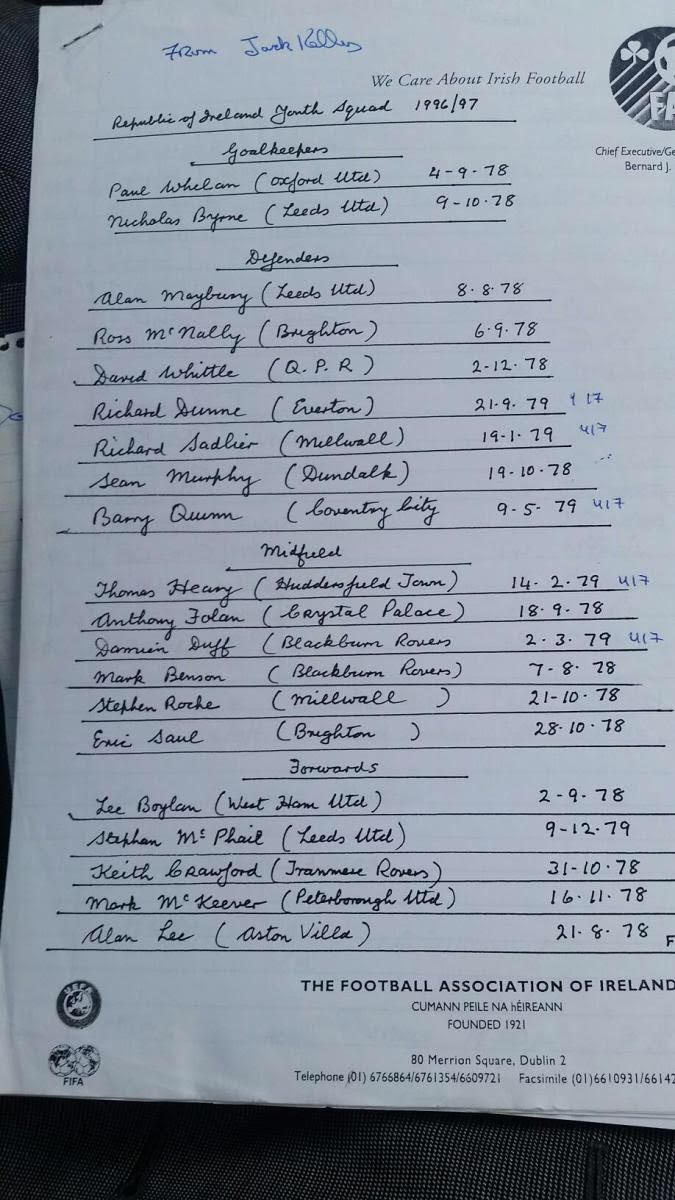 From Jack
We Care About Irish Football
Republic of Ireland Youth Squad 1996/97
Chief Executive/Ge
Bernard J.
Goalkeepers
Paul Whelan (Oxford Utd) 4-9-78
Nicholas Byrne (Leeds Utd) 9-10-78
Defenders
Alan Maybury (Leeds Utd) 8.8.78
Ross McNally (Brighton) 6.9.78
David Whittle (Q.P.R) 2-12.78
Richard Dunne (Everton) 21.9.79 U17
Richard Sadlier (Millwall) 19.1.79 U17
Sean Murphy (Dundalk) 19-10-78
Barry Quinn (Coventry City 9-5-79 U17
Midfield
Thomas Heary (Huddersfield Town) 14.2.79 U17
Anthony Folan (Crystal Palace) 18.9.78
Damien Duff (Blackburn Rovers 2.3.79 U17
Mark Benson (Blackburn Rovers) 7-8.78
Stephen Roche (Millwall) 21-10.78
Eric Saul (Brighton) 28.10.78
Forwards
Lee Boylan (West Ham Utd) 2-9.78
Stephan McPhail (Leeds Utd) 9-12.79
Keith Crawford (Tranmere Rovers) 31-10.78
Mark McKeever (Peterborough Utd) 16.11.78
Alan Lee (Aston Villa) 21.8.78
THE FOOTBALL ASSOCIATION OF IRELAND
CUMANN PEILE NA hÉIREANN
FOUNDED 1921
80 Merrion Square, Dublin 2
Telephone (01) 6766864/6761354/6609721 Facsimile (01)6610931/66142
UEFA
FIFA